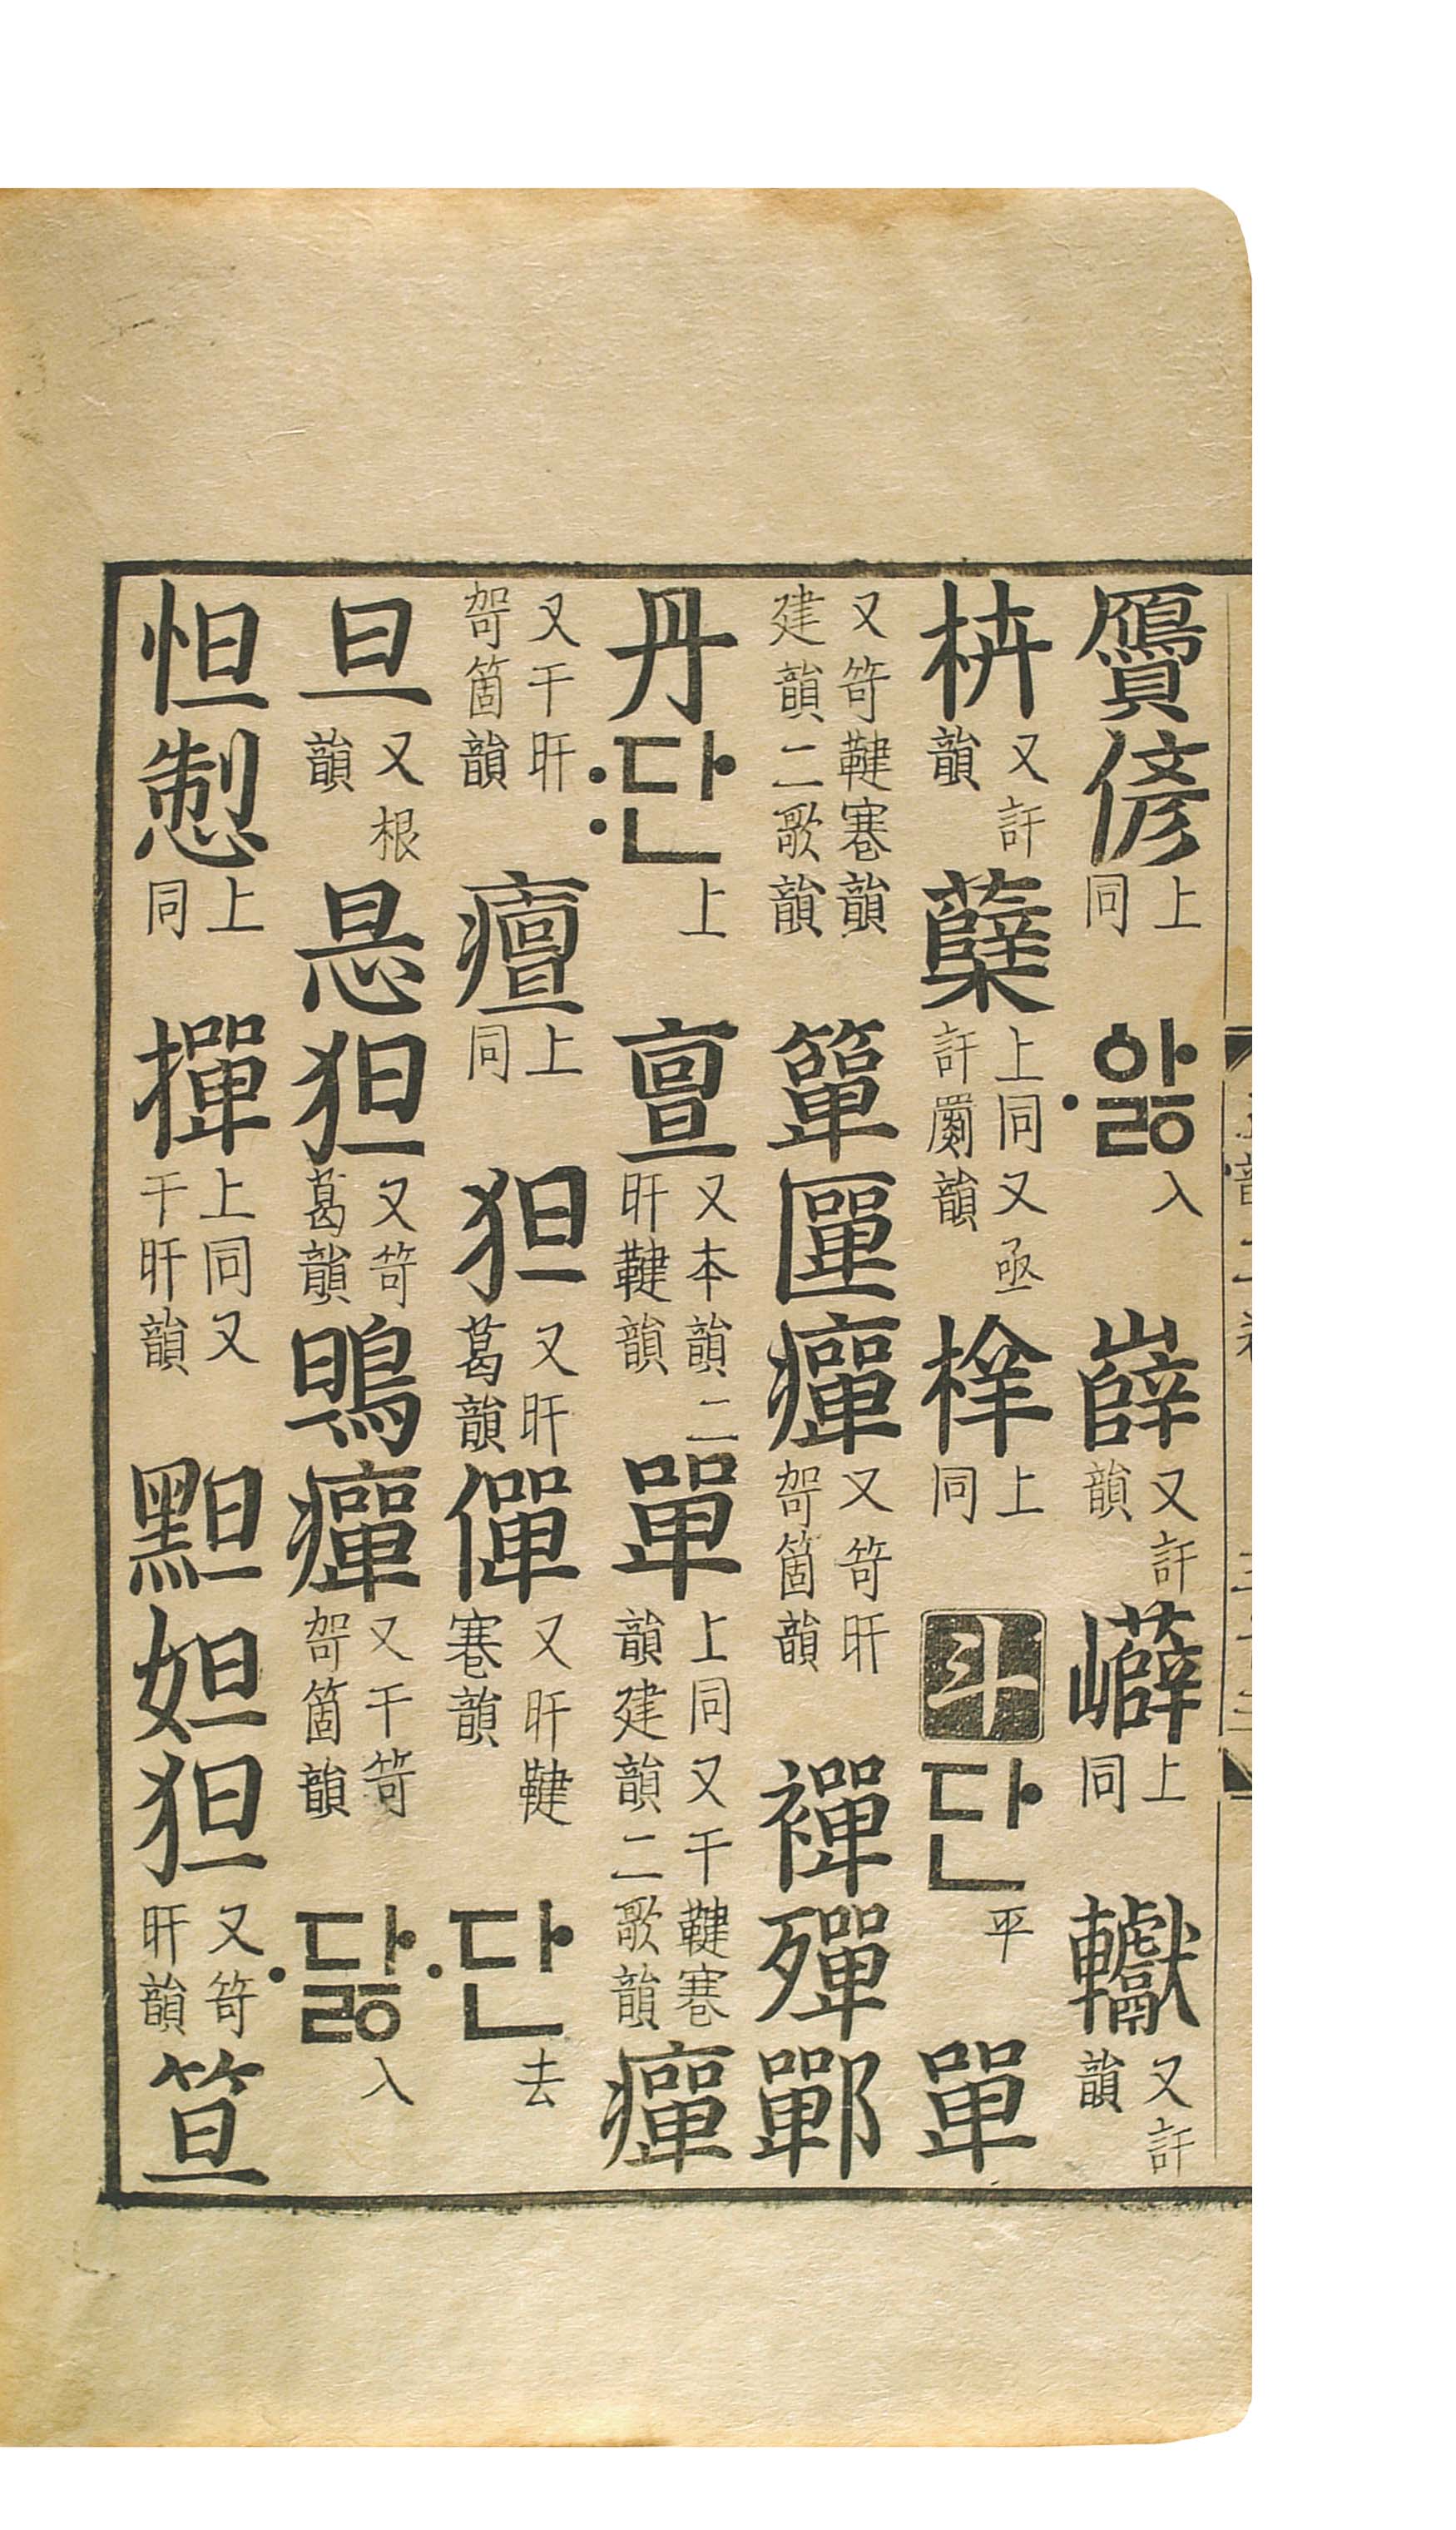 贗偐上同·ᅌᅡᇙ入嶭又訐韻上同又訐韻
枿又訐韻蘖上同又亟訐罽韻上同斗단平單
又笴鞬寋韻建韻二歌韻簞匰癉又笴旰哿箇韻襌殫鄲
丹:단上亶又本韻二旰鞬韻單上同又干鞬寋韻建韻二歌韻癉
又干旰哿箇韻上同狚又旰葛韻僤又旰鞬寋韻·단去
旦又根韻狚又笴葛韻鴠癉又干笴哿箇韻·다ᇙ入
怛上同撣上同又干旰韻䵣妲狚又笴旰韻笪